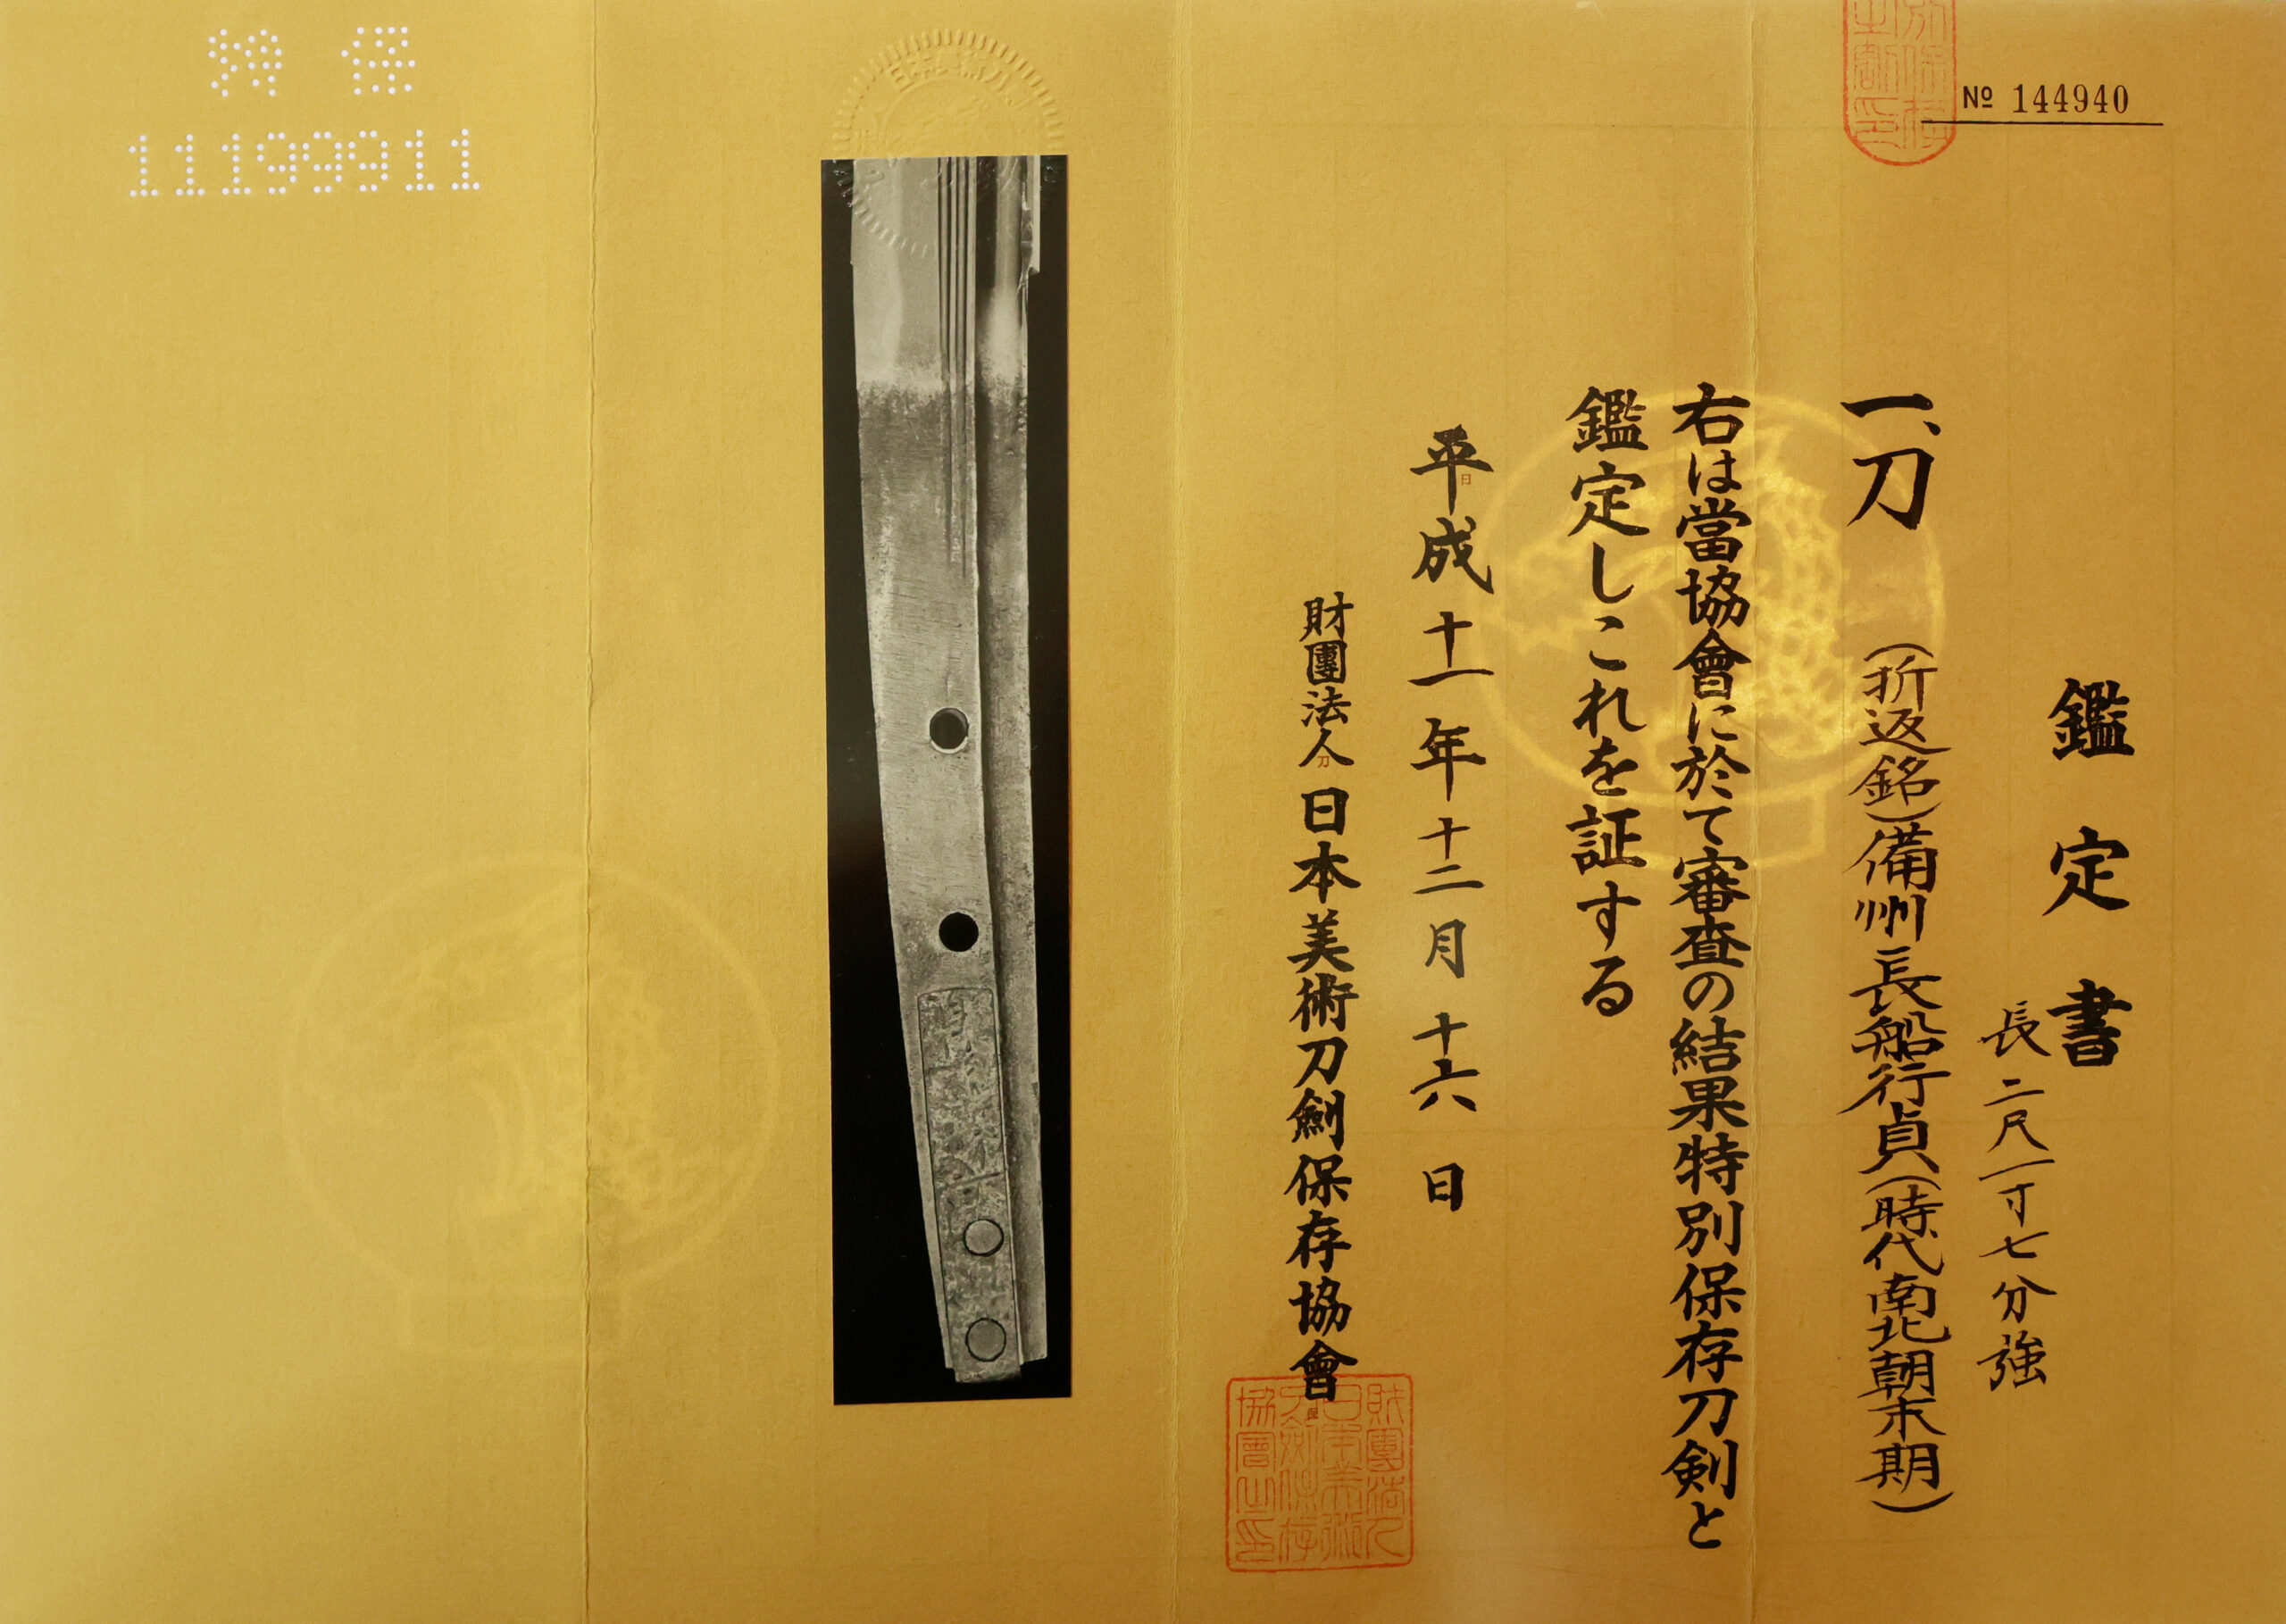 No 144940
鑑定書
長二尺一寸七分強
一、刀 (折返銘)備州長船行貞(時代南北朝末期)
右は當協會に於て審査の結果特別保存刀剣と
鑑定しこれを証する
平成十一年十二月十六日
財團法人日本美術刀劍保存協會
財團法人
日本美術
刀劍保存
協會之印
特保
11199911